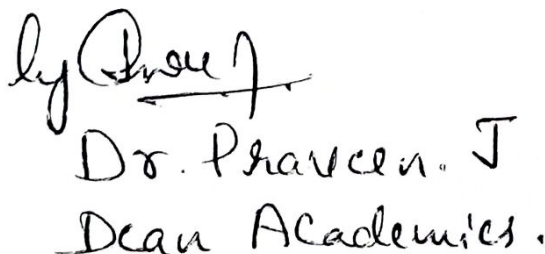 by
Dr. Praveen. J
Dean Academics.